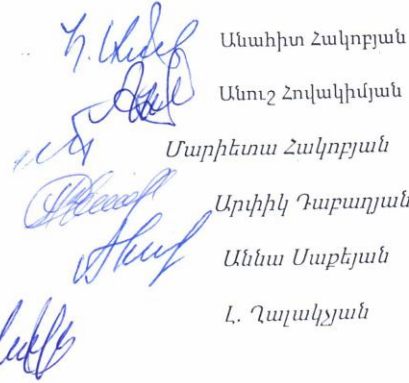 Անահիտ Հակոբյան
Անուշ Հովակիմյան
Մարիետա Հակոբյան
Արփիկ Դաբաղյան
Աննա Սաքեյան
Լ. Ղալակչյան